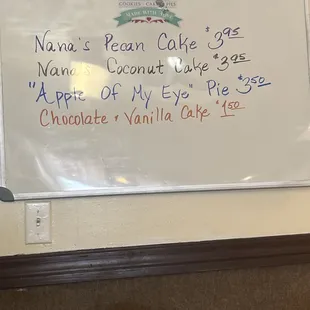 COOKIES CAKES PIES
MADE WITH
Nana's Pecan Cake $3.95
Nana's Coconut Cake $3.95
"Apple Of My Eye" Pie $3.50
Chocolate & Vanilla Cake $1.50